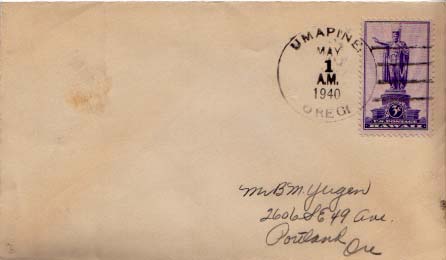 UMAPINE
MAY
1
A.M.
1940
OREG.
3¢
U.S. POSTAGE
HAWAII
Mr B.M. Yugen
2606 SE 49 Ave.
Portland
Ore